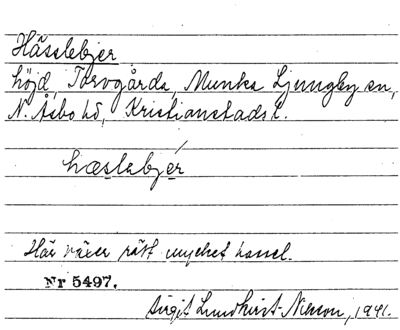 Hässlebjer
höjd, Torvgårda, Munka Ljungby sn,
N. Åsbo hd, Kristianstads l.
hæslabjér
Här växer rätt mycket hassel.
Nr 5497.
Birgit Lundkvist-Nilsson, 1941.